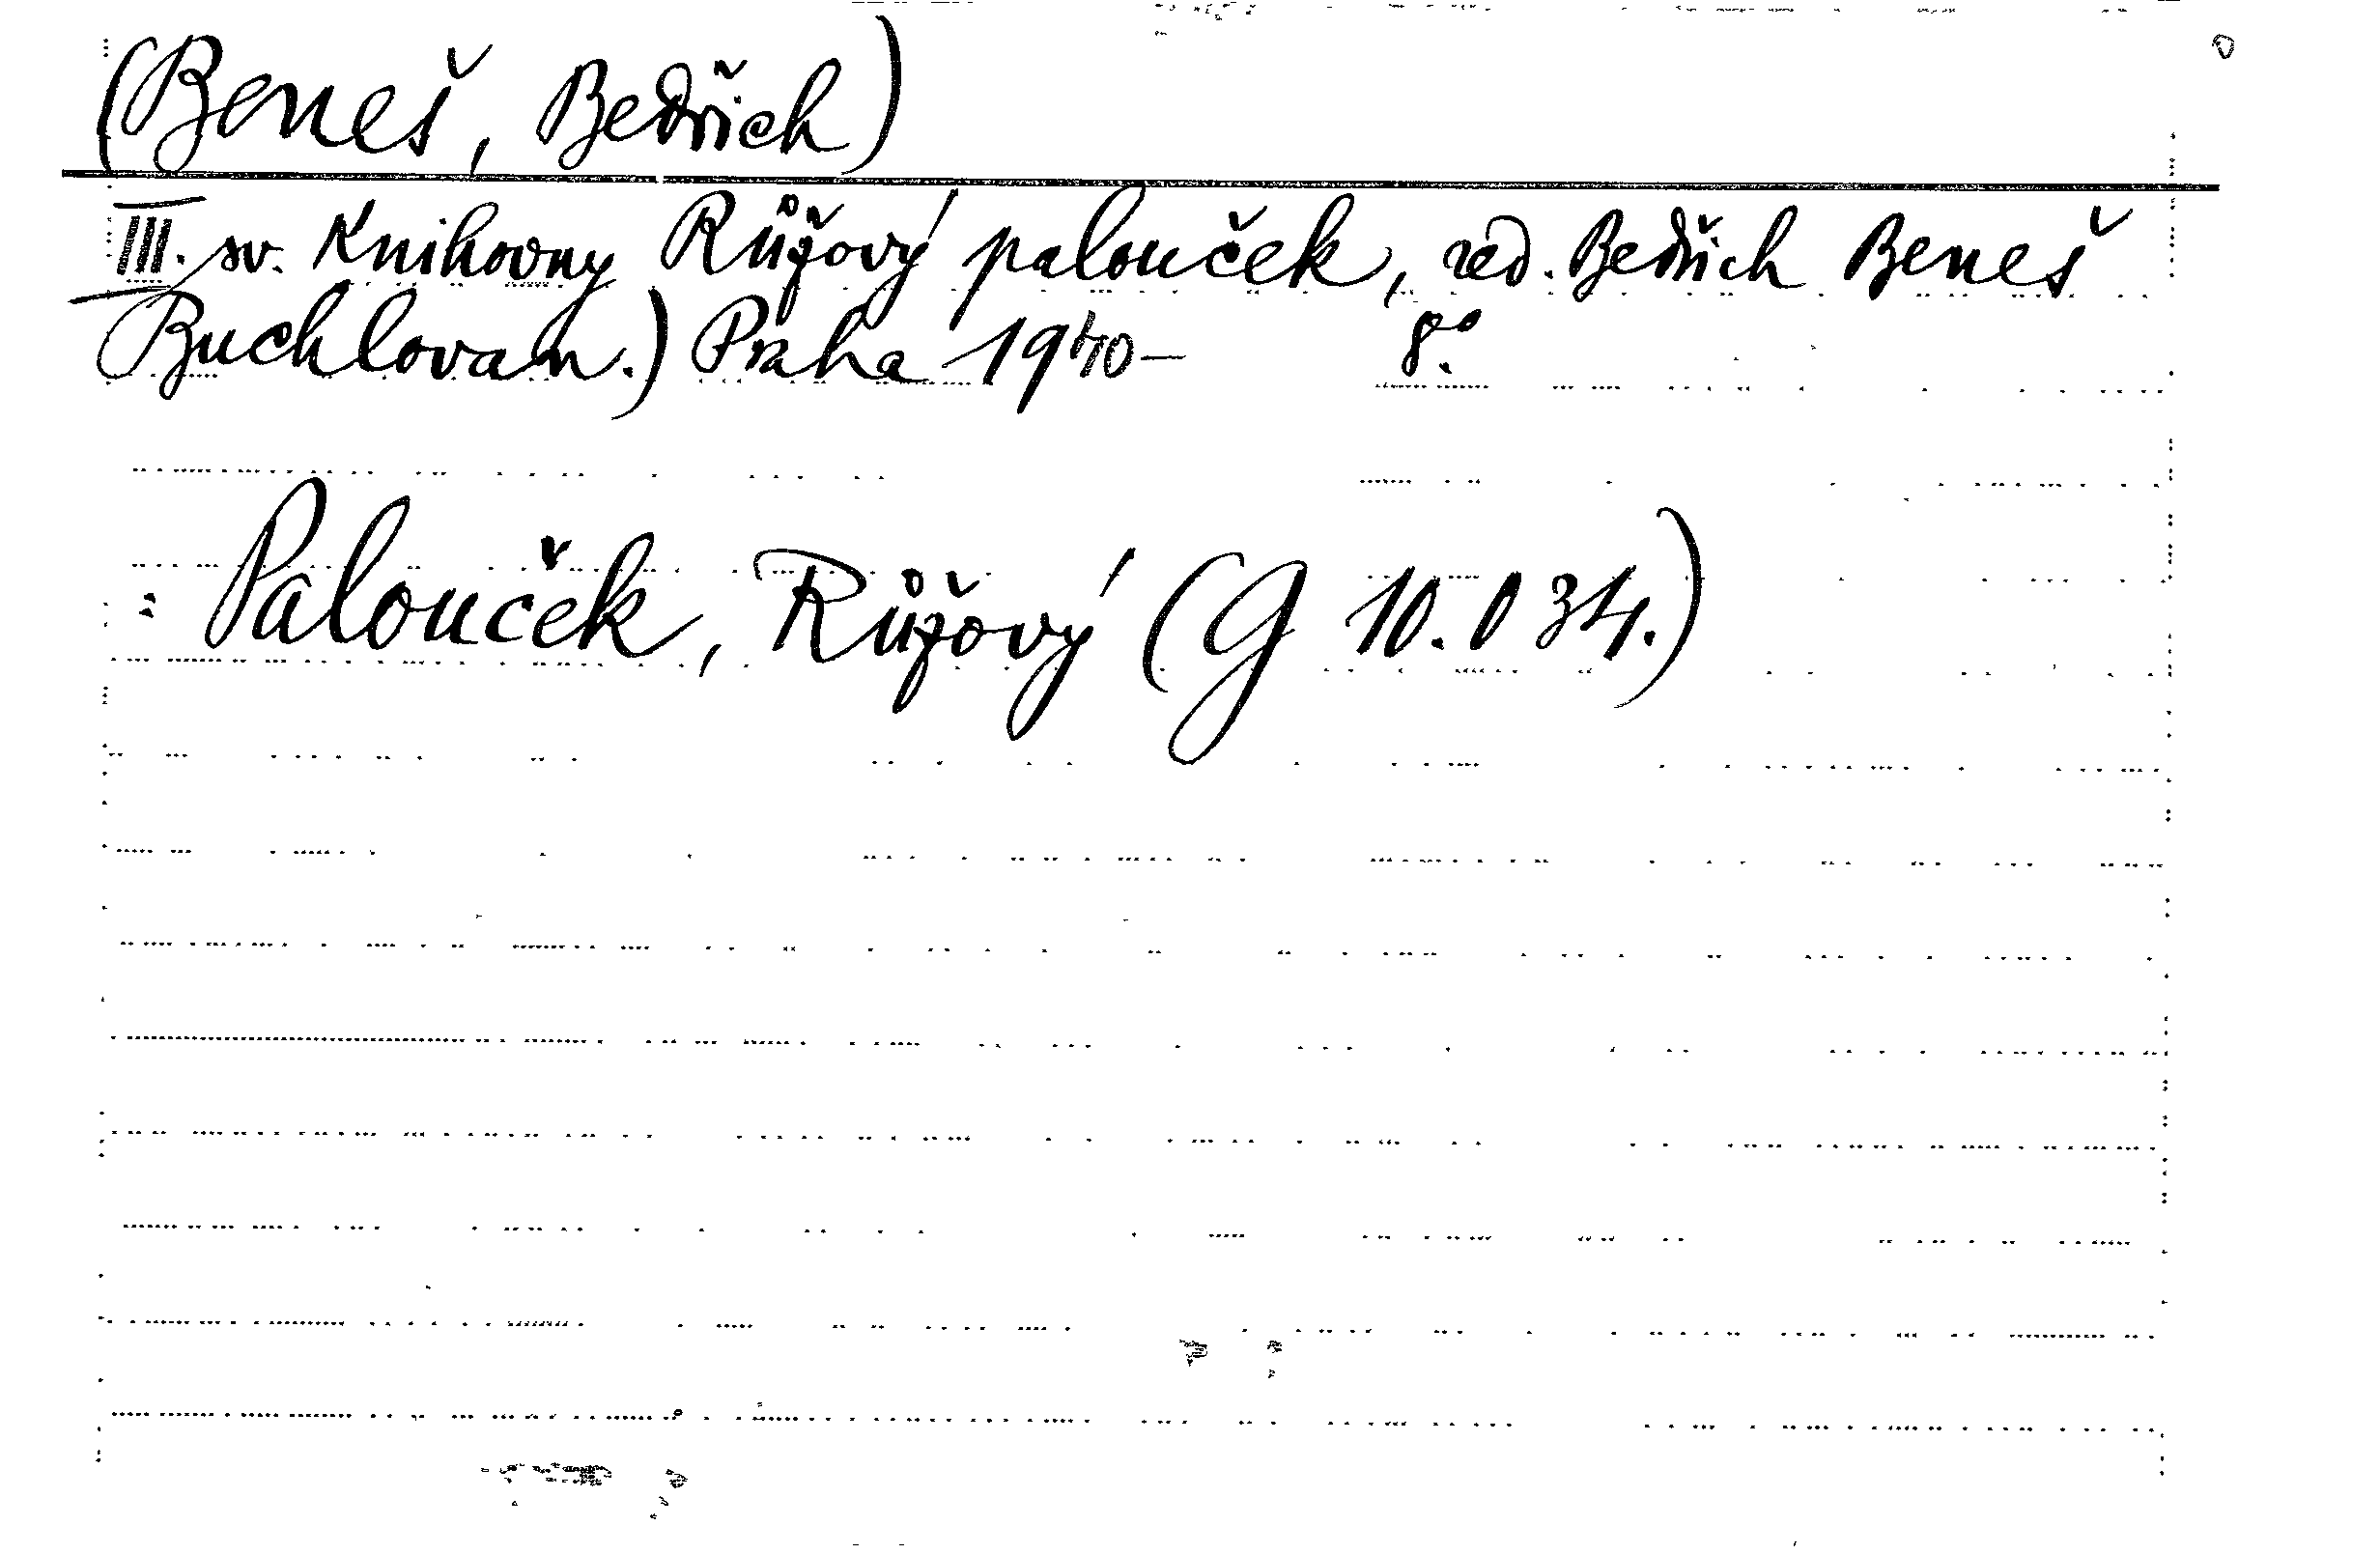 (Beneš, Bedřich)
III. sv. Knihovny Růžový palouček, red. Bedřich Beneš
Buchlovan.) Praha 1940– 8.º
: Palouček, Růžový (G 10.034.)